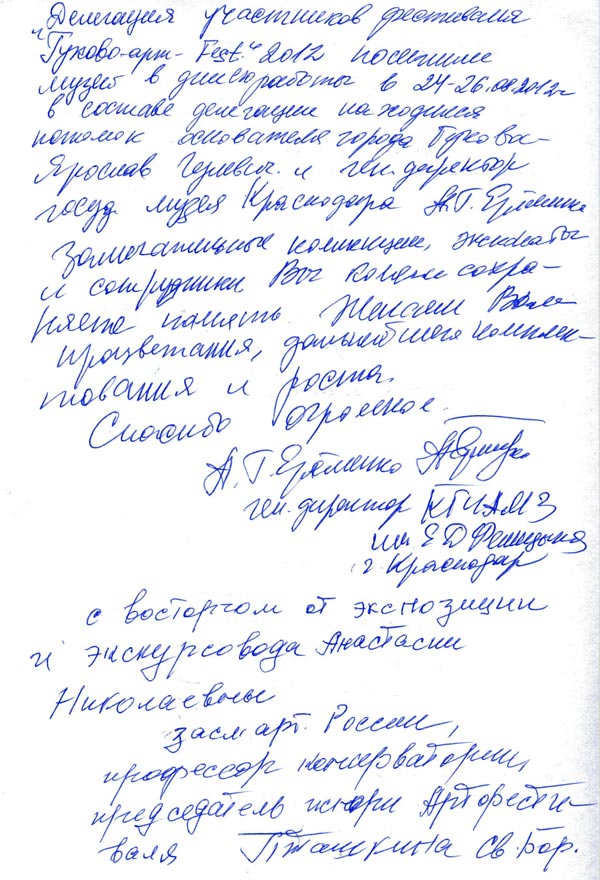 Делегация участников фестиваля
"Гуково-арт-Fest" 2012 посетила
музей в дни работы в 24-26.08.2012г
в составе делегации находился
потомок основателя города Гукова-
Ярослав и ген. директор
госуд. музея Краснодара А.Г. Ерёменко
Замечательные коллекции, экспонаты
и сотрудники Вы сохра-
няете память Желаем Вам
процветания, дальнейшего комплек-
тования и роста.
Спасибо огромное.
А.Г. Ерёменко
ген. директор КГИАМЗ
им Е Д Фелицына
г. Краснодар
с восторгом от экспозиции
и экскурсовода Анастасии
Николаевны
засл арт. России,
профессор консерватории,
председатель жюри Артфести-
валя Пташкина Св. Бор.